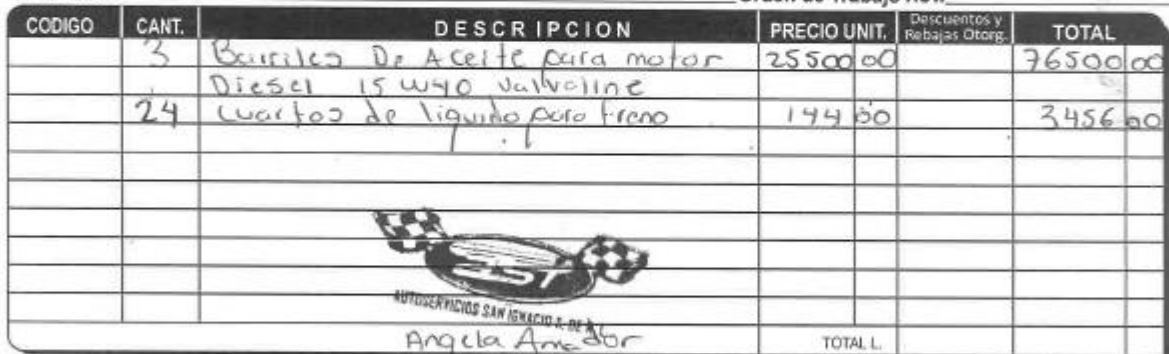 Orden de Trabajo
CODIGO CANT. DESCRIPCION PRECIO UNIT. Descuentos y Rebajas Otorg. TOTAL
3 Barriles De Aceite para motor 25500 00 76500 00
Diesel 15 W40 Valvoline
24 Cuartos de liquido para freno 144 00 3456 00
AUTOSERVICIOS SAN IGNACIO S. DE R.L.
Angela Amador TOTAL L.